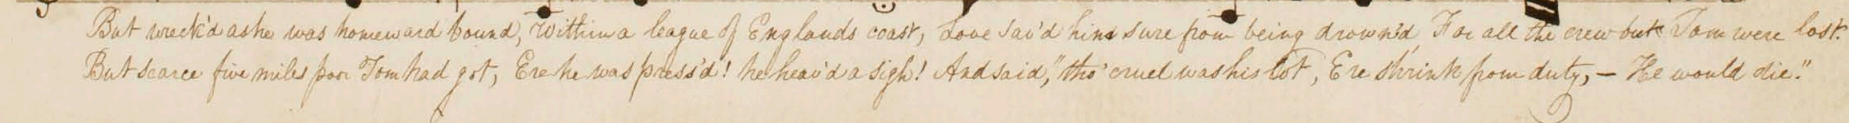 But wreck'd as he was homeward bound, Within a league of Englands coast, Love sav'd him sure from being drown'd For all the crew but Tom were lost.
But scarce five miles poor Tom had got, Ere he was press'd! he heav'd a sigh! And said, "tho' cruel was his lot, Ere shrink from duty, – He would die."